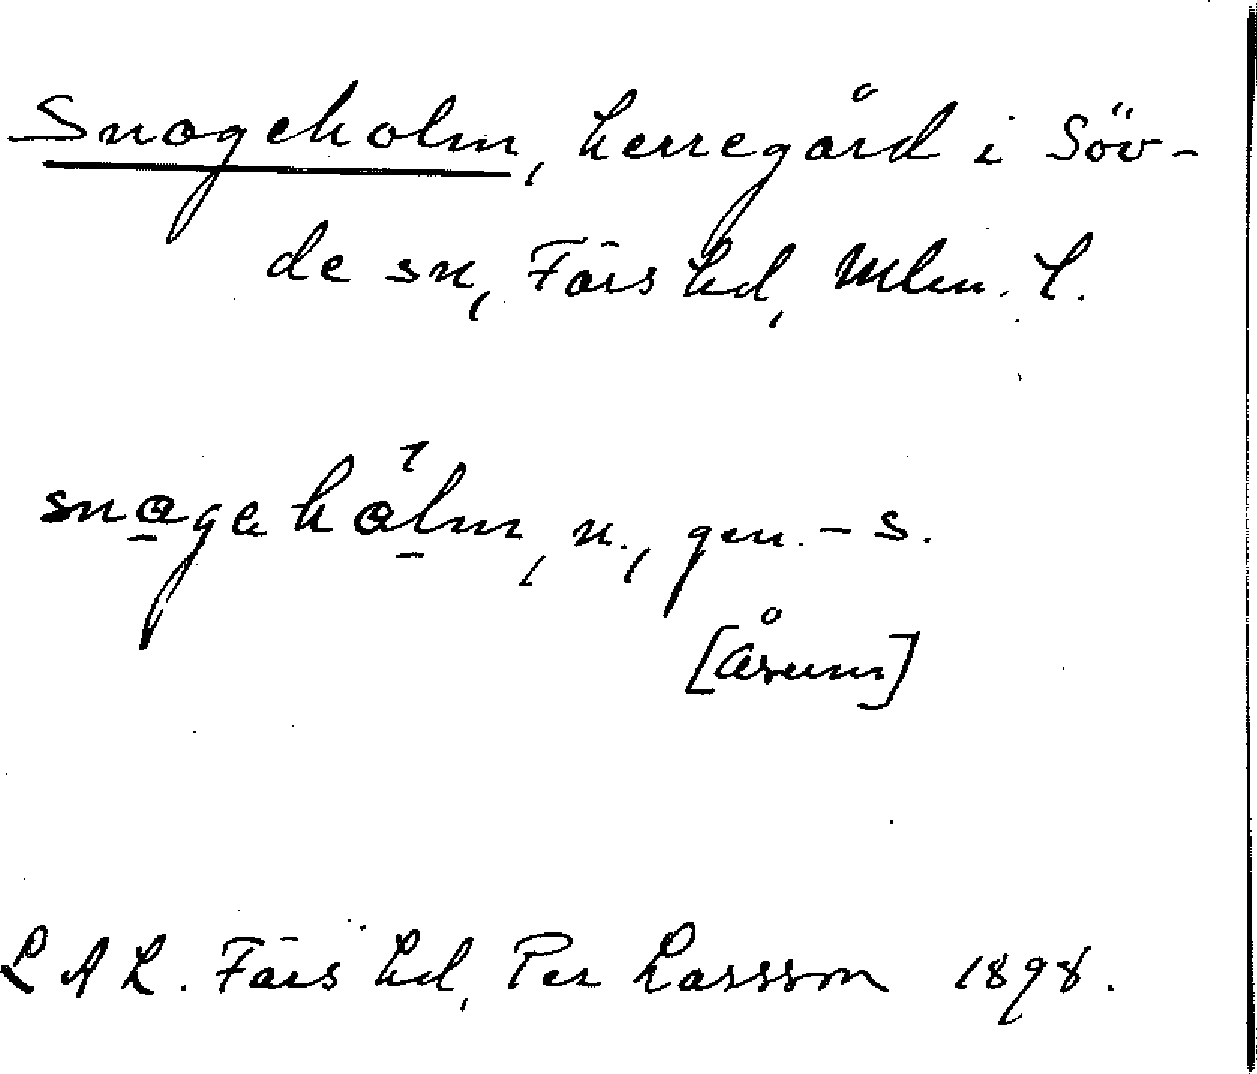 Snogeholm, herregård i Söv-
de sn, Färs hd, Mlm. l.
snogeholm, n., gen. - s.
[Åsum]
L A L. Färs hd, Per Larsson 1898.